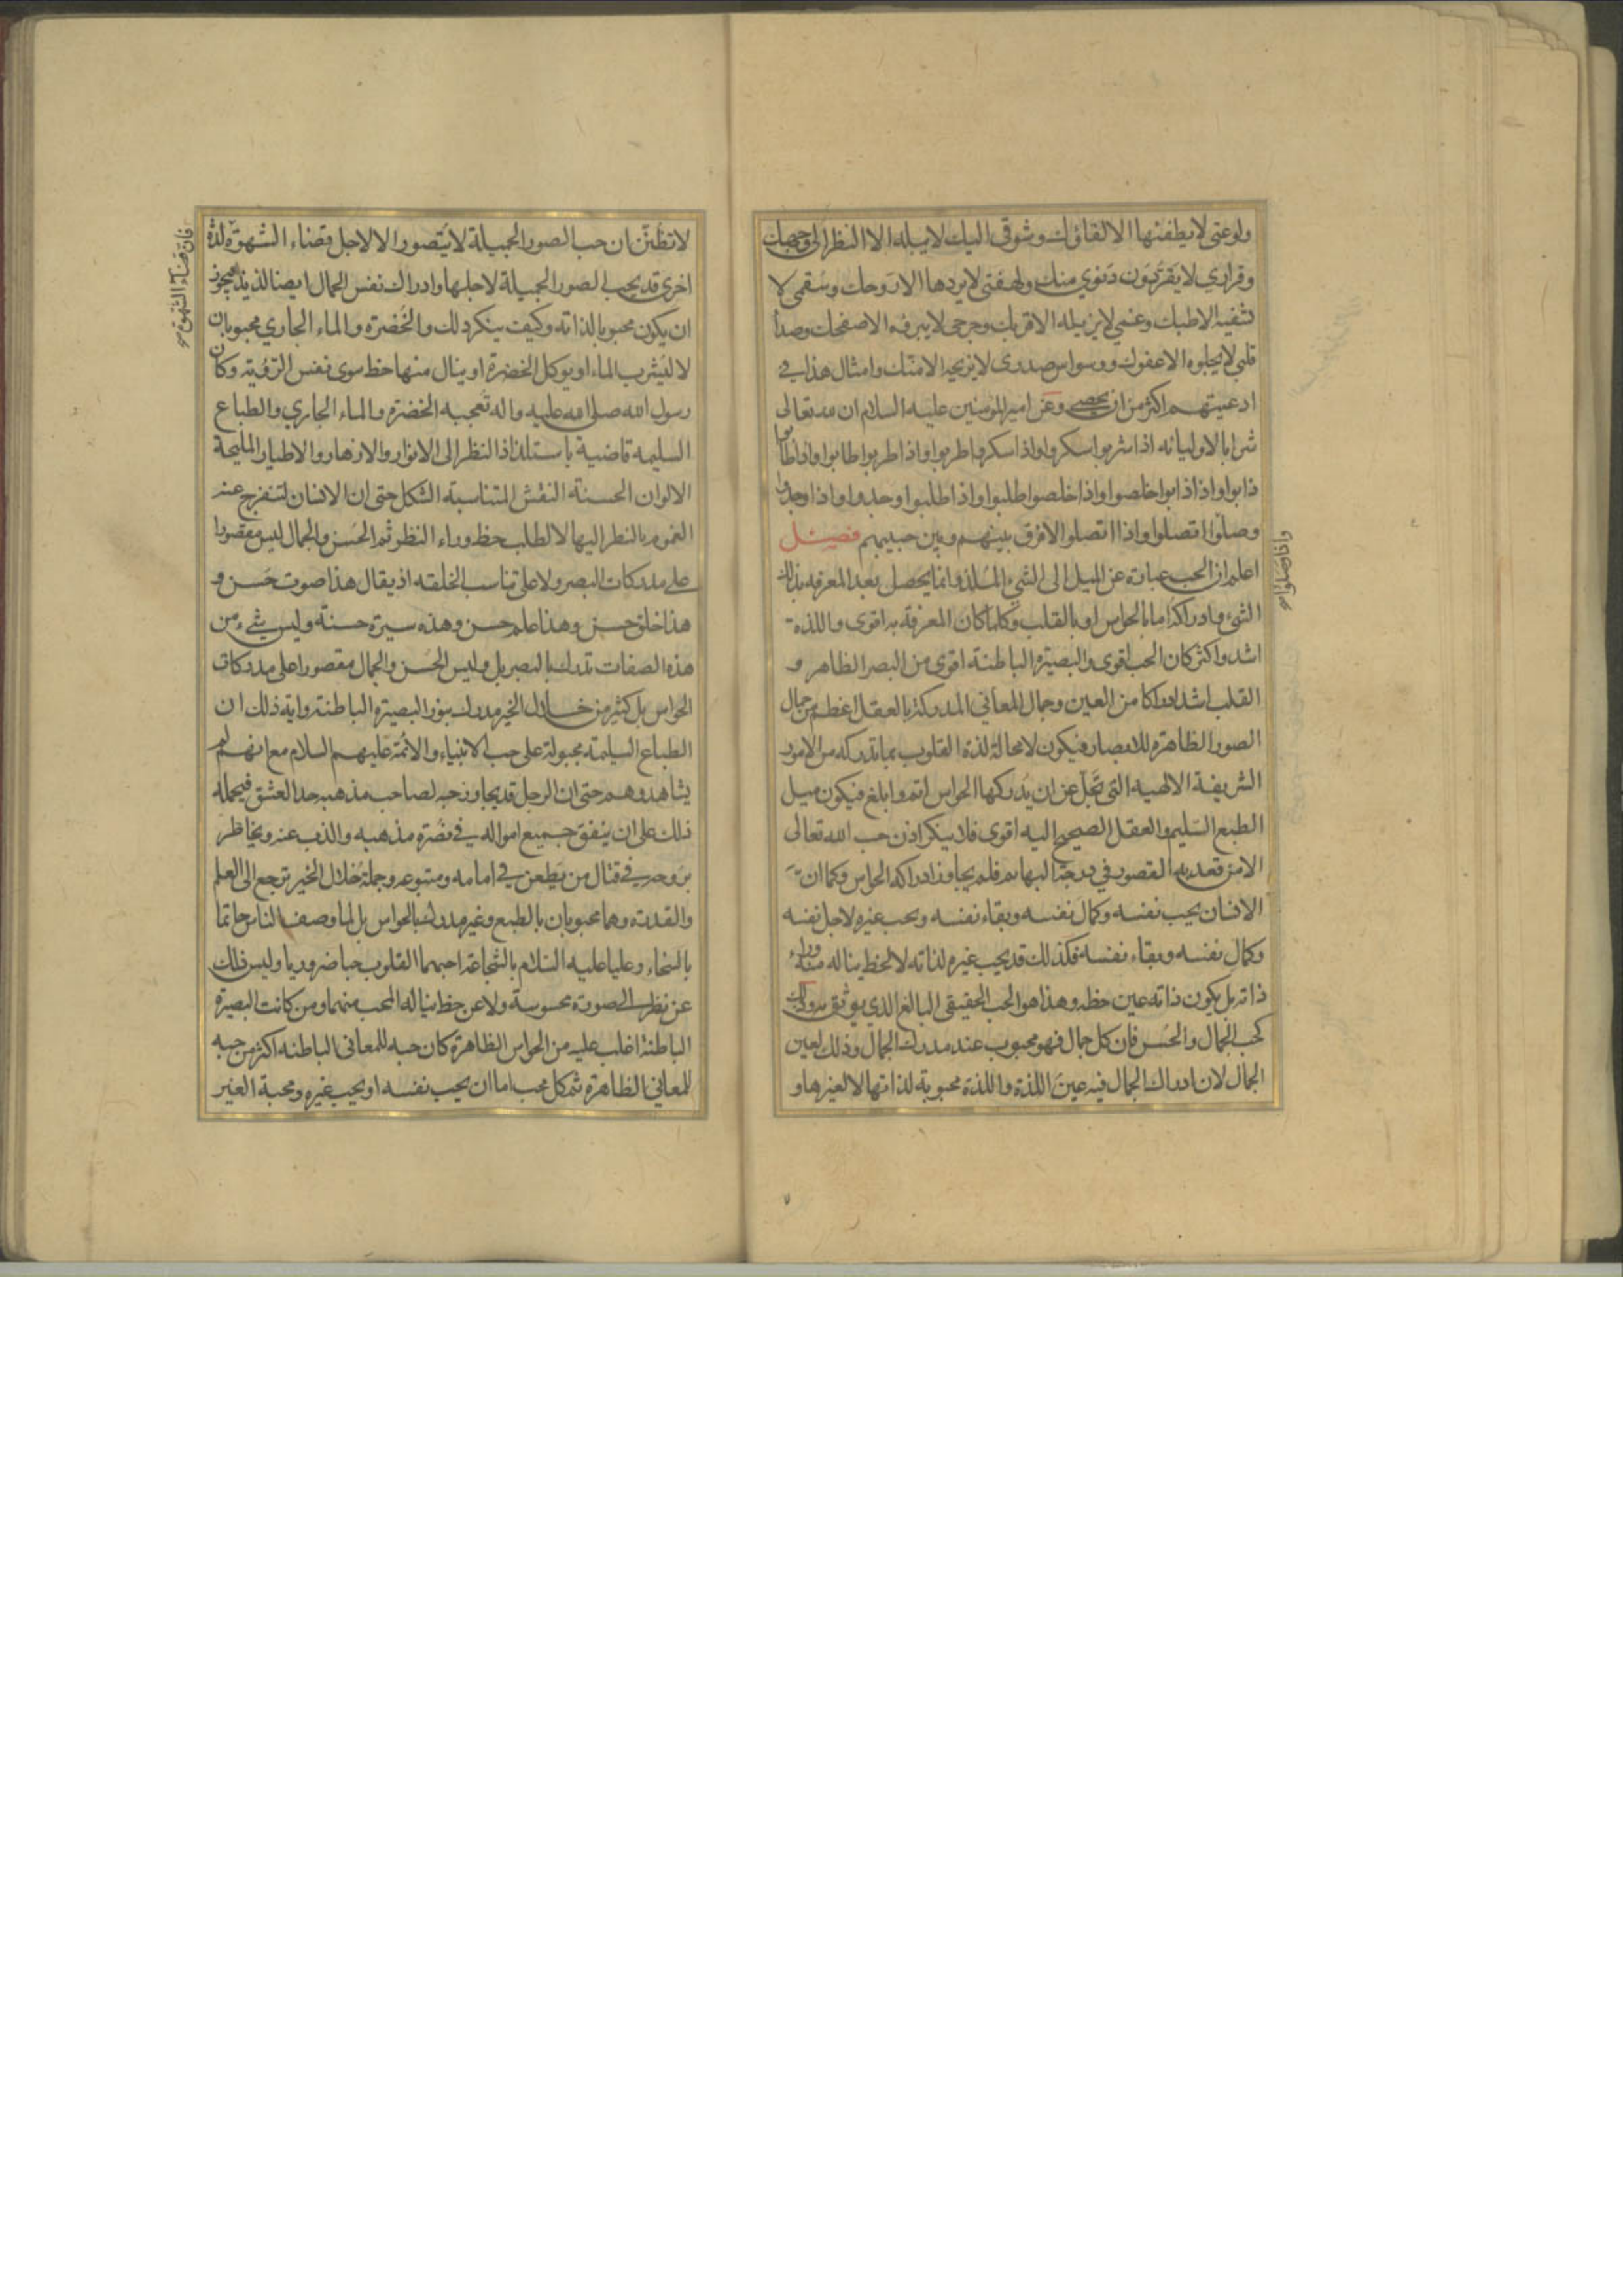 ولوعتي لا يطفئها الا لقاؤك وشوقي اليك لا يبله الا النظر الى وجهك
وقراري لا يقر دون دنوي منك ولهفتي لا يردها الا روحك وسقمي لا
يشفيه الا طبك وغمي لا يزيله الا قربك وجرحي لا يبرئه الا صفحك وصدأ
قلبي لا يجلوه الا عفوك ووسواس صدري لا يزيحه الا منّك وامثال هذا في
ادعيتهم اكثر من ان يحصى وعن امير المومنين عليه السلام ان لله تعالى
شرابا لاوليائه اذا شربوا سكروا واذا سكروا طربوا واذا طربوا طابوا واذا طابوا
ذابوا واذا ذابوا خلصوا واذا خلصوا طلبوا واذا طلبوا وجدوا واذا وجدوا
وصلوا اتصلوا واذا اتصلوا لا فرق بينهم وبين حبيبهم فصـل
واذا وصلوا
اعلم ان الحب عبارة عن الميل الى الشيء الملذ وانما يحصل بعد المعرفه بذلك
الشيء وادراكه اما بالحواس او بالقلب وكلما كان المعرفة به اقوى واللذة
اشد واكثر كان الحب اقوى والبصيرة الباطنة اقوى من البصر الظاهر و
القلب اشد ادراكا من العين وجمال المعاني المدركة بالعقل اعظم من جمال
الصور الظاهرة للابصار فيكون لا محالة لذة القلوب بما تدركه من الامور
الشريفة الالهيه التي تجل عن ان يدركها الحواس اتم وابلغ فيكون ميل
الطبع السليم والعقل الصحيح اليه اقوى فلا ينكر اذن حب الله تعالى
الا من قعد به القصور في درجة البهايم فلم يجاوز ادراكه الحواس وكما ان
الانسان يحب نفسه وكمال نفسه وبقاء نفسه ويحب غيره لاجل نفسه
وكمال نفسه وبقاء نفسه فكذلك قد يحب غيره لذاته لا لحظ يناله منه وراء
ذاته بل يكون ذاته عين حظه وهذا هو الحب الحقيقي البالغ الذي يوثق به وذلك
كحب الجمال والحسن فان كل جمال فهو محبوب عند مدرك الجمال وذلك لعين
الجمال لان ادراك الجمال فيه عين اللذة واللذة محبوبة لذاتها لا لغيرها و
لا تظنن ان حب الصور الجميلة لا يتصور الا لاجل قضاء الشهوة لذة
فان قضاء الشهوة
اخرى قد يحب الصور الجميلة لاجلها وادراك نفس الجمال ايضا لذيذ فيجوز
ان يكون محبوبا لذاته وكيف ينكر ذلك والخضرة والماء الجاري محبوبان
لا ليشرب الماء او يوكل الخضرة او ينال منها حظ سوى نفس الرؤية وكان
رسول الله صلى الله عليه واله تعجبه الخضرة والماء الجاري والطباع
السليمه قاضية باستلذاذ النظر الى الانوار والازهار والاطيار المليحة
الالوان الحسنة النقش المتناسبة الشكل حتى ان الانسان لتنفرج عنه
الغموم بالنظر اليها لا لطلب حظ وراء النظر ثم الحسن والجمال ليس مقصورا
على مدركات البصر ولا على تناسب الخلقه اذ يقال هذا صوت حسن و
هذا خلق حسن وهذا علم حسن وهذه سيرة حسنة وليس شيء من
هذه الصفات تدرك بالبصر بل وليس الحسن والجمال مقصورا على مدركات
الحواس بل كثير من خلال الخير مدرك بنور البصيرة الباطنة واية ذلك ان
الطباع السليمة مجبولة على حب الانبياء والائمة عليهم السلام مع انهم لم
يشاهدوهم حتى ان الرجل قد يجاوز حبه لصاحب مذهبه حد العشق فيحمله
ذلك على ان ينفق جميع امواله في نصرة مذهبه والذب عنه ويخاطر
بروحه في قتال من يطعن في امامه ومتبوعه وجملة خلال الخير ترجع الى العلم
والقدرة وهما محبوبان بالطبع وغير مدرك بالحواس بل لما وصف الناس حاتما
بالسخاء وعليا عليه السلام بالشجاعة احبهما القلوب حبا ضروريا وليس ذلك
عن نظر الى صورة محسوسة ولا عن حظ يناله المحب منهما ومن كانت البصيرة
الباطنة اغلب عليه من الحواس الظاهرة كان حبه للمعاني الباطنه اكثر من حبه
للمعاني الظاهرة ثم كل محب اما ان يحب نفسه او يحب غيره ومحبة الغير